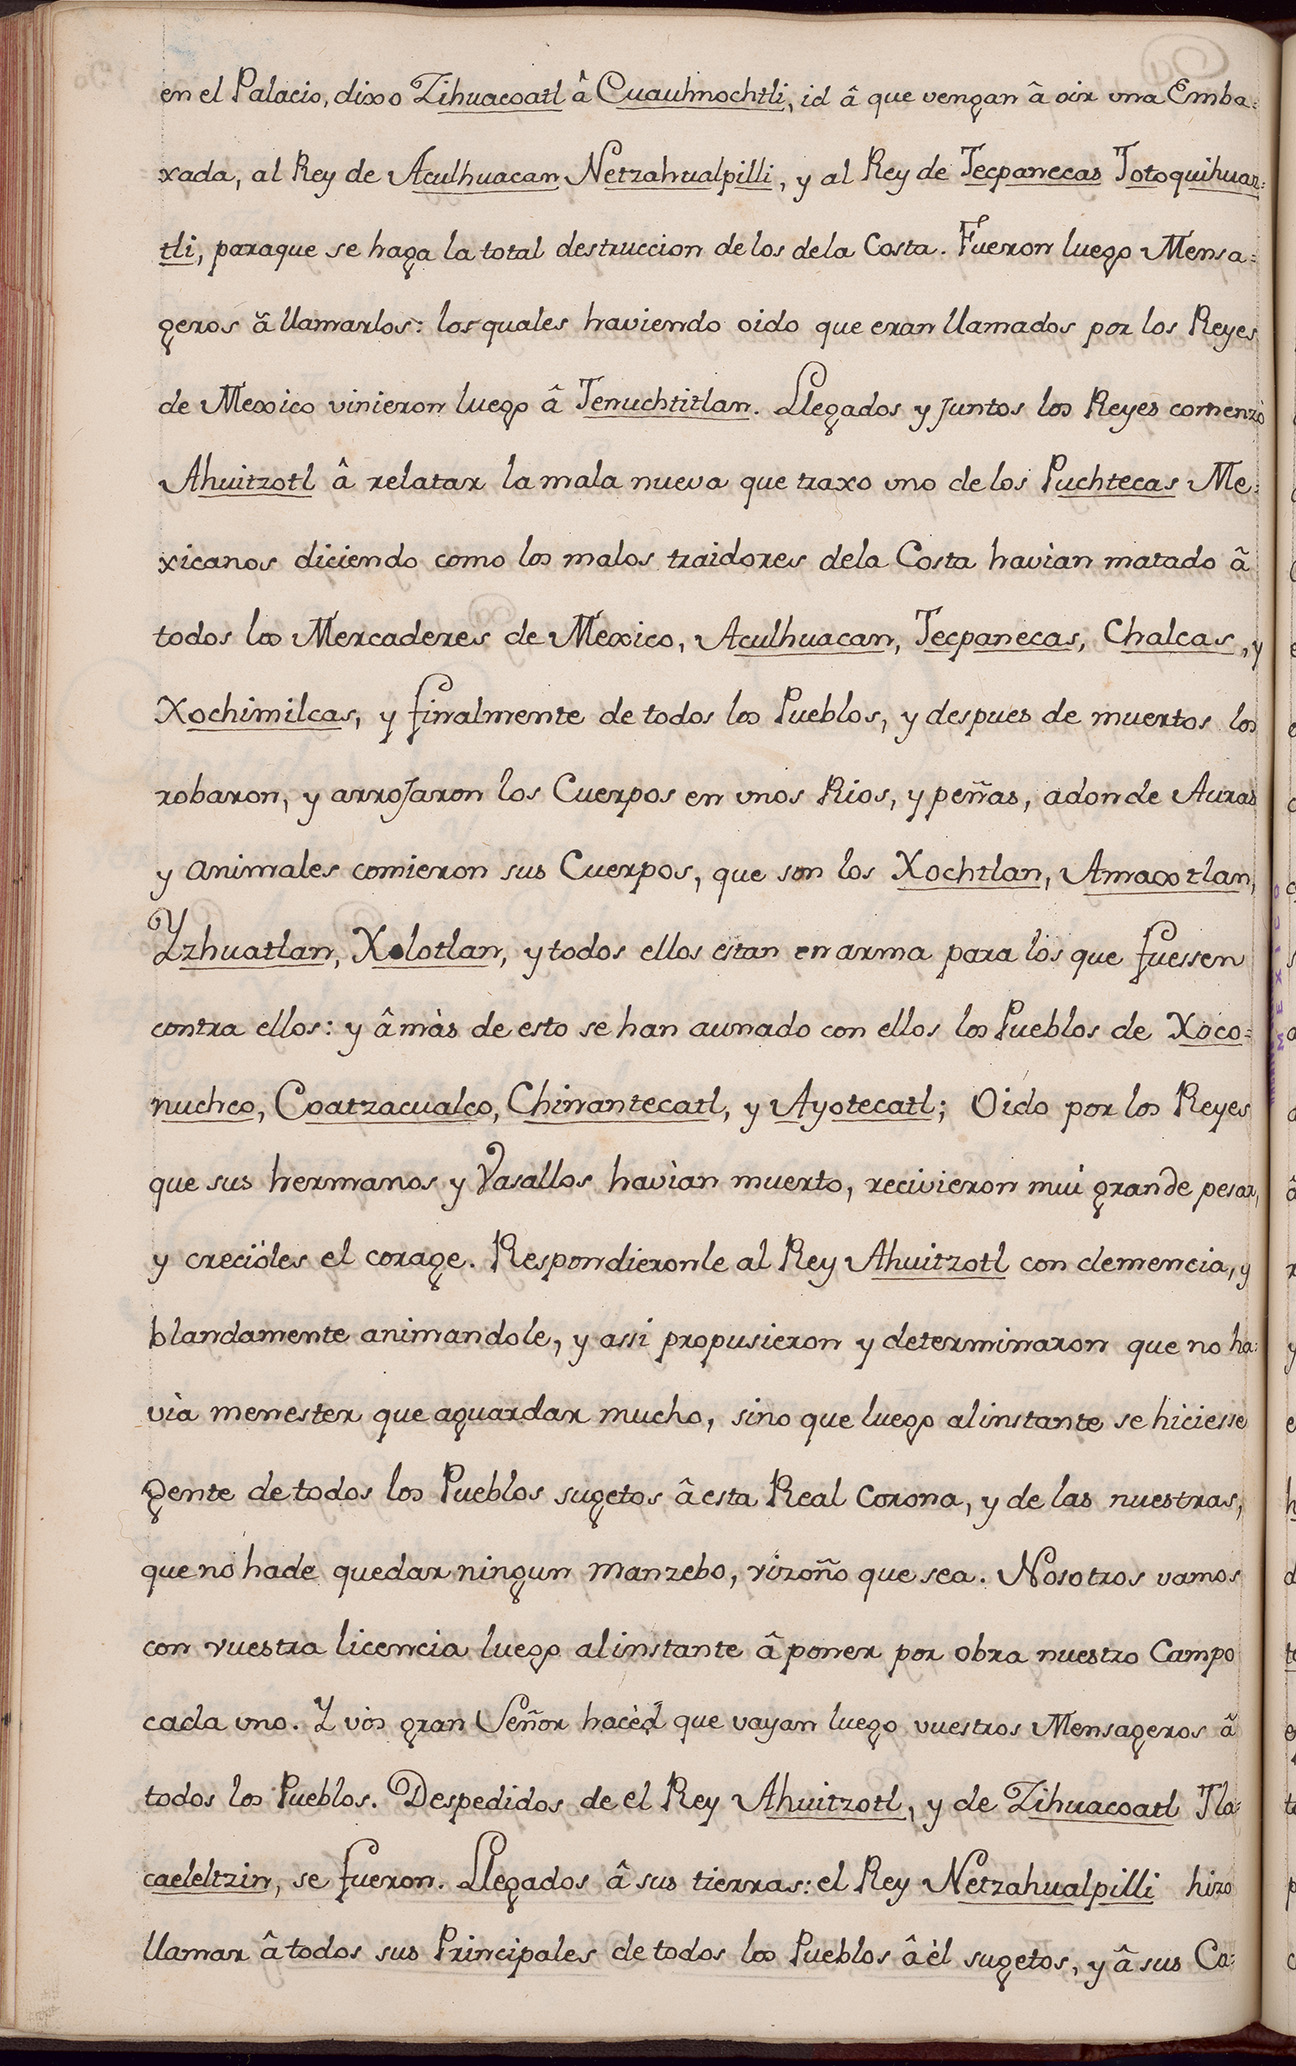 en el Palacio, dixo Zihuacoatl â Cuauhnochtli, id â que vengan â oir una Emba=
xada, al Rey de Aculhuacan Netzahualpilli, y al Rey de Tecpanecas Totoquihuaz=
tli, paraque se haga la total destruccion de los dela Costa. Fueron luego Mensa=
geros â llamarlos: los quales haviendo oido que eran llamados por los Reyes
de Mexico vinieron luego â Tenuchtitlan. Llegados y juntos los Reyes comenzò
Ahuitzotl â relatar la mala nueva que traxo uno de los Puchtecas Me=
xicanos diciendo como los malos traidores dela Costa havìan matado â
todos los Mercaderes de Mexico, Aculhuacan, Tecpanecas, Chalcas, y
Xochimilcas, y finalmente de todos los Pueblos, y despues de muertos los
robaron, y arrojaron los Cuerpos en unos Rios, y peñas, adonde Auras
y animales comieron sus Cuerpos, que son los Xochtlan, Amaxtlan,
Yzhuatlan, Xolotlan, y todos ellos estan en arma para los que fuessen
contra ellos: y â màs de esto se han aunado con ellos los Pueblos de Xoco=
nuchco, Coatzacualco, Chinantecatl, y Ayotecatl; Oido por los Reyes
que sus hermanos y Vasallos havìan muerto, recivieron mui grande pesar,
y creciòles el corage. Respondieronle al Rey Ahuitzotl con clemencia, y
blandamente animandole, y assi propusieron y determinaron que no ha=
vìa menester que aguardar mucho, sino que luego alinstante se hiciesse
gente de todos los Pueblos sugetos â esta Real Corona, y de las nuestras,
que no hade quedar ningun manzebo, vizoño que sea. Nosotros vamos
con vuestra licencia luego alinstante â poner por obra nuestro Campo
cada uno. Y vòs gran Señor hacèd que vayan luego vuestros Mensageros â
todos los Pueblos. Despedidos de el Rey Ahuitzotl, y de Zihuacoatl Tla=
caeleltzin, se fueron. Llegados â sus tierras: el Rey Netzahualpilli hizo
llamar â todos sus Principales de todos los Pueblos â èl sugetos, y â sus Ca=